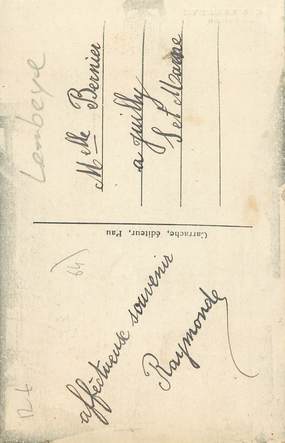 Lembeye
Melle Bernier
a Juilly
S et Marne
Carrache, éditeur, Pau
64
affectueux souvenir
Raymonde